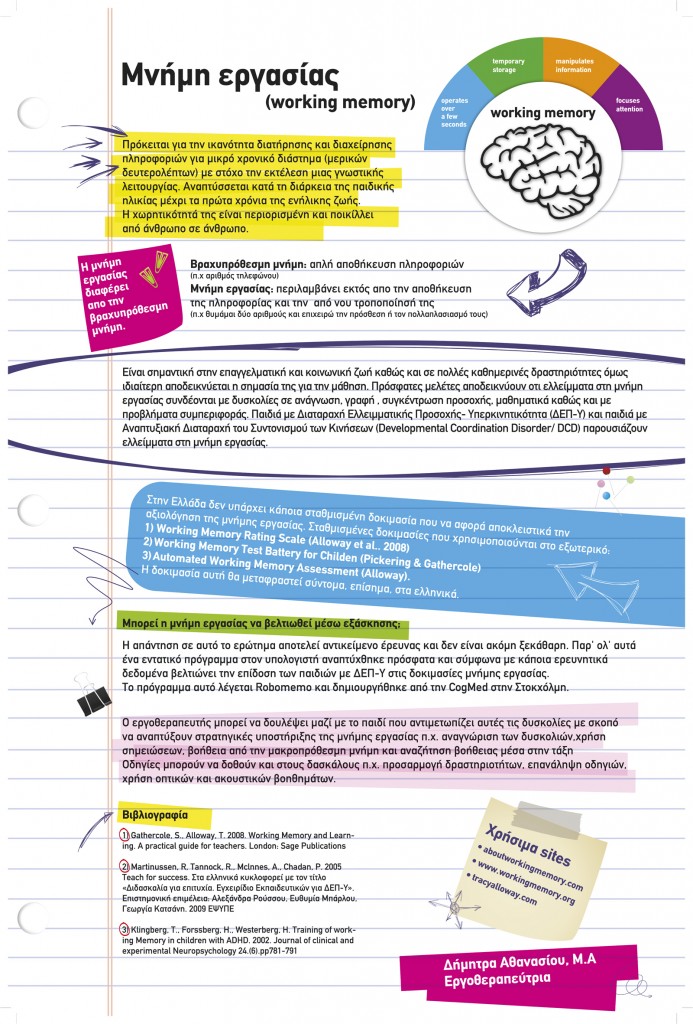 Μνήμη εργασίας
(working memory)
operates
over
a few
seconds
temporary
storage
manipulates
information
focuses
attention
working memory
Πρόκειται για την ικανότητα διατήρησης και διαχείρησης
πληροφοριών για μικρό χρονικό διάστημα (μερικών
δευτερολέπτων) με στόχο την εκτέλεση μιας γνωστικής
λειτουργίας. Αναπτύσσεται κατά τη διάρκεια της παιδικής
ηλικίας μέχρι τα πρώτα χρόνια της ενήλικης ζωής.
Η χωρητικότητά της είναι περιορισμένη και ποικίλλει
από άνθρωπο σε άνθρωπο.
Η μνήμη
εργασίας
διαφέρει
απο την
βραχυπρόθεσμη
μνήμη.
Βραχυπρόθεσμη μνήμη: απλή αποθήκευση πληροφοριών
(π.χ αριθμός τηλεφώνου)
Μνήμη εργασίας: περιλαμβάνει εκτός απο την αποθήκευση
της πληροφορίας και την από νου τροποποίησή της
(π.χ θυμάμαι δύο αριθμούς και επιχειρώ την πρόσθεση ή τον πολλαπλασιασμό τους)
Είναι σημαντική στην επαγγελματική και κοινωνική ζωή καθώς και σε πολλές καθημερινές δραστηριότητες όμως
ιδιαίτερη αποδεικνύεται η σημασία της για την μάθηση. Πρόσφατες μελέτες αποδεικνύουν οτι ελλείματα στη μνήμη
εργασίας συνδέονται με δυσκολίες σε ανάγνωση, γραφή , συγκέντρωση προσοχής, μαθηματικά καθώς και με
προβλήματα συμπεριφοράς. Παιδιά με Διαταραχή Ελλειμματικής Προσοχής- Υπερκινητικότητα (ΔΕΠ-Υ) και παιδιά με
Αναπτυξιακή Διαταραχή του Συντονισμού των Κινήσεων (Developmental Coordination Disorder/ DCD) παρουσιάζουν
ελλείμματα στη μνήμη εργασίας.
Στην Ελλάδα δεν υπάρχει κάποια σταθμισμένη δοκιμασία που να αφορά αποκλειστικά την
αξιολόγηση της μνήμης εργασίας. Σταθμισμένες δοκιμασίες που χρησιμοποιούνται στο εξωτερικό:
1) Working Memory Rating Scale (Alloway et al., 2008)
2) Working Memory Test Battery for Childen (Pickering & Gathercole)
3) Automated Working Memory Assessment (Alloway).
Η δοκιμασία αυτή θα μεταφραστεί σύντομα, επίσημα, στα ελληνικά.
Μπορεί η μνήμη εργασίας να βελτιωθεί μέσω εξάσκησης;
Η απάντηση σε αυτό το ερώτημα αποτελεί αντικείμενο έρευνας και δεν είναι ακόμη ξεκάθαρη. Παρ' ολ' αυτά
ένα εντατικό πρόγραμμα στον υπολογιστή αναπτύχθηκε πρόσφατα και σύμφωνα με κάποια ερευνητικά
δεδομένα βελτιώνει την επίδοση των παιδιών με ΔΕΠ-Υ στις δοκιμασίες μνήμης εργασίας.
Το πρόγραμμα αυτό λέγεται Robomemo και δημιουργήθηκε από την CogMed στην Στοκχόλμη.
Ο εργοθεραπευτής μπορεί να δουλέψει μαζί με το παιδί που αντιμετωπίζει αυτές τις δυσκολίες με σκοπό
να αναπτύξουν στρατηγικές υποστήριξης της μνήμης εργασίας π.χ. αναγνώριση των δυσκολιών,χρήση
σημειώσεων, βοήθεια από την μακροπρόθεσμη μνήμη και αναζήτηση βοήθειας μέσα στην τάξη
Οδηγίες μπορούν να δοθούν και στους δασκάλους π.χ. προσαρμογή δραστηριοτήτων, επανάληψη οδηγιών,
χρήση οπτικών και ακουστικών βοηθημάτων.
Βιβλιογραφία
1) Gathercole, S., Alloway, T. 2008. Working Memory and Learn-
ing. A practical guide for teachers. London: Sage Publications
2) Martinussen, R, Tannock, R., McInnes, A., Chadan, P. 2005
Teach for success. Στα ελληνικά κυκλοφορεί με τον τίτλο
«Διδασκαλία για επιτυχία. Εγχειρίδιο Εκπαιδευτικών για ΔΕΠ-Υ».
Επιστημονική επιμέλεια: Αλεξάνδρα Ρούσσου, Ευθυμία Μπάρλου,
Γεωργία Κατσάνη. 2009 ΕΨΥΠΕ
3) Klingberg, T., Forssberg, H., Westerberg, H. Training of work-
ing Memory in children with ADHD. 2002. Journal of clinical and
experimental Neuropsychology 24.(6).pp781-791
Χρήσιμα sites
• aboutworkingmemory.com
• www.workingmemory.org
• tracyalloway.com
Δήμητρα Αθανασίου, M.A
Εργοθεραπεύτρια